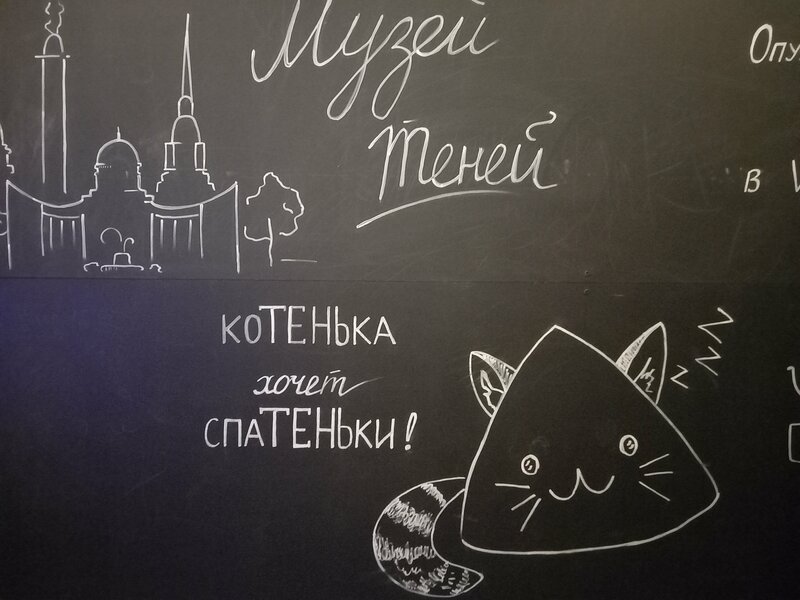 Музей
теней
в
коТЕНЬка
хочет
спаТЕНЬки!
z z z z